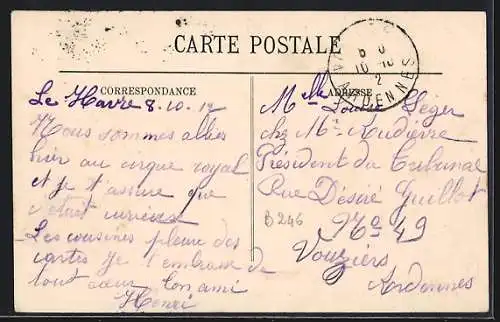 CARTE POSTALE
CORRESPONDANCE
ADRESSE
ARDENNES
Le Havre 8.10.12
Nous sommes allés
hier au cirque royal
et je t'assure que
c'était curieux
Les cousines pleure des
cartes je t'embrasse de
tout cœur ton ami
Henri
Mlle Louise Léger
chez Mr Audierre
Président du Tribunal
Rue Désiré Guillot
No 49
Vouziers
Ardennes
B246